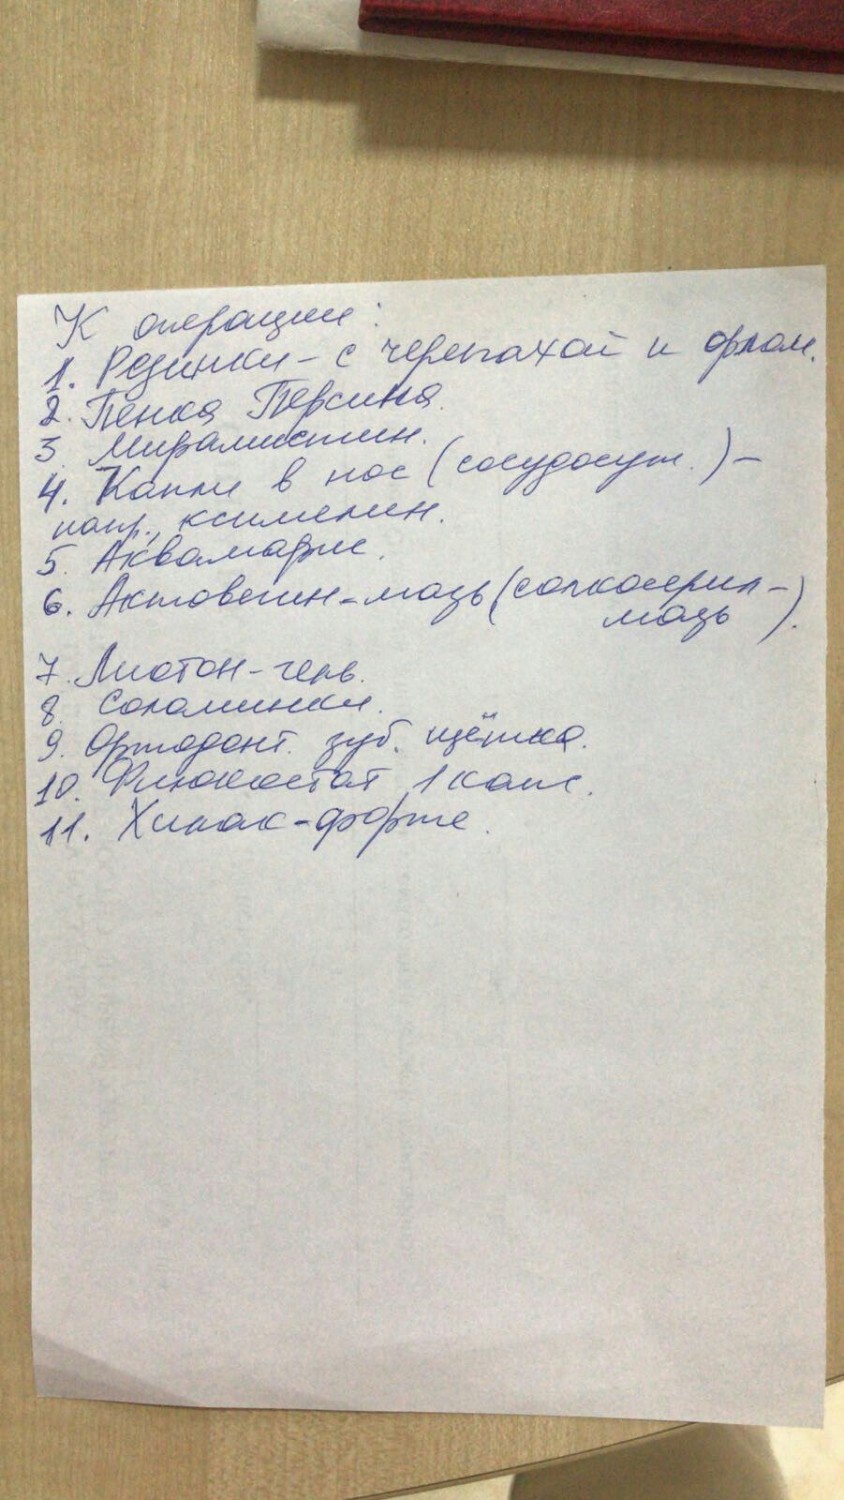 К операции:
1. Резинки - с черепахой и флом.
2. Пенка Персина.
3. Мирамистин.
4. Капли в нос (сосудосуж.) -
напр., ксимелин.
5. Аквамарис.
6. Актовегин - мазь (солкосерил-
мазь).
7. Лиотон - гель.
8. Соломинки.
9. Ортодонт. зуб. щётка.
10. Флюкостат 1 капс.
11. -форте.